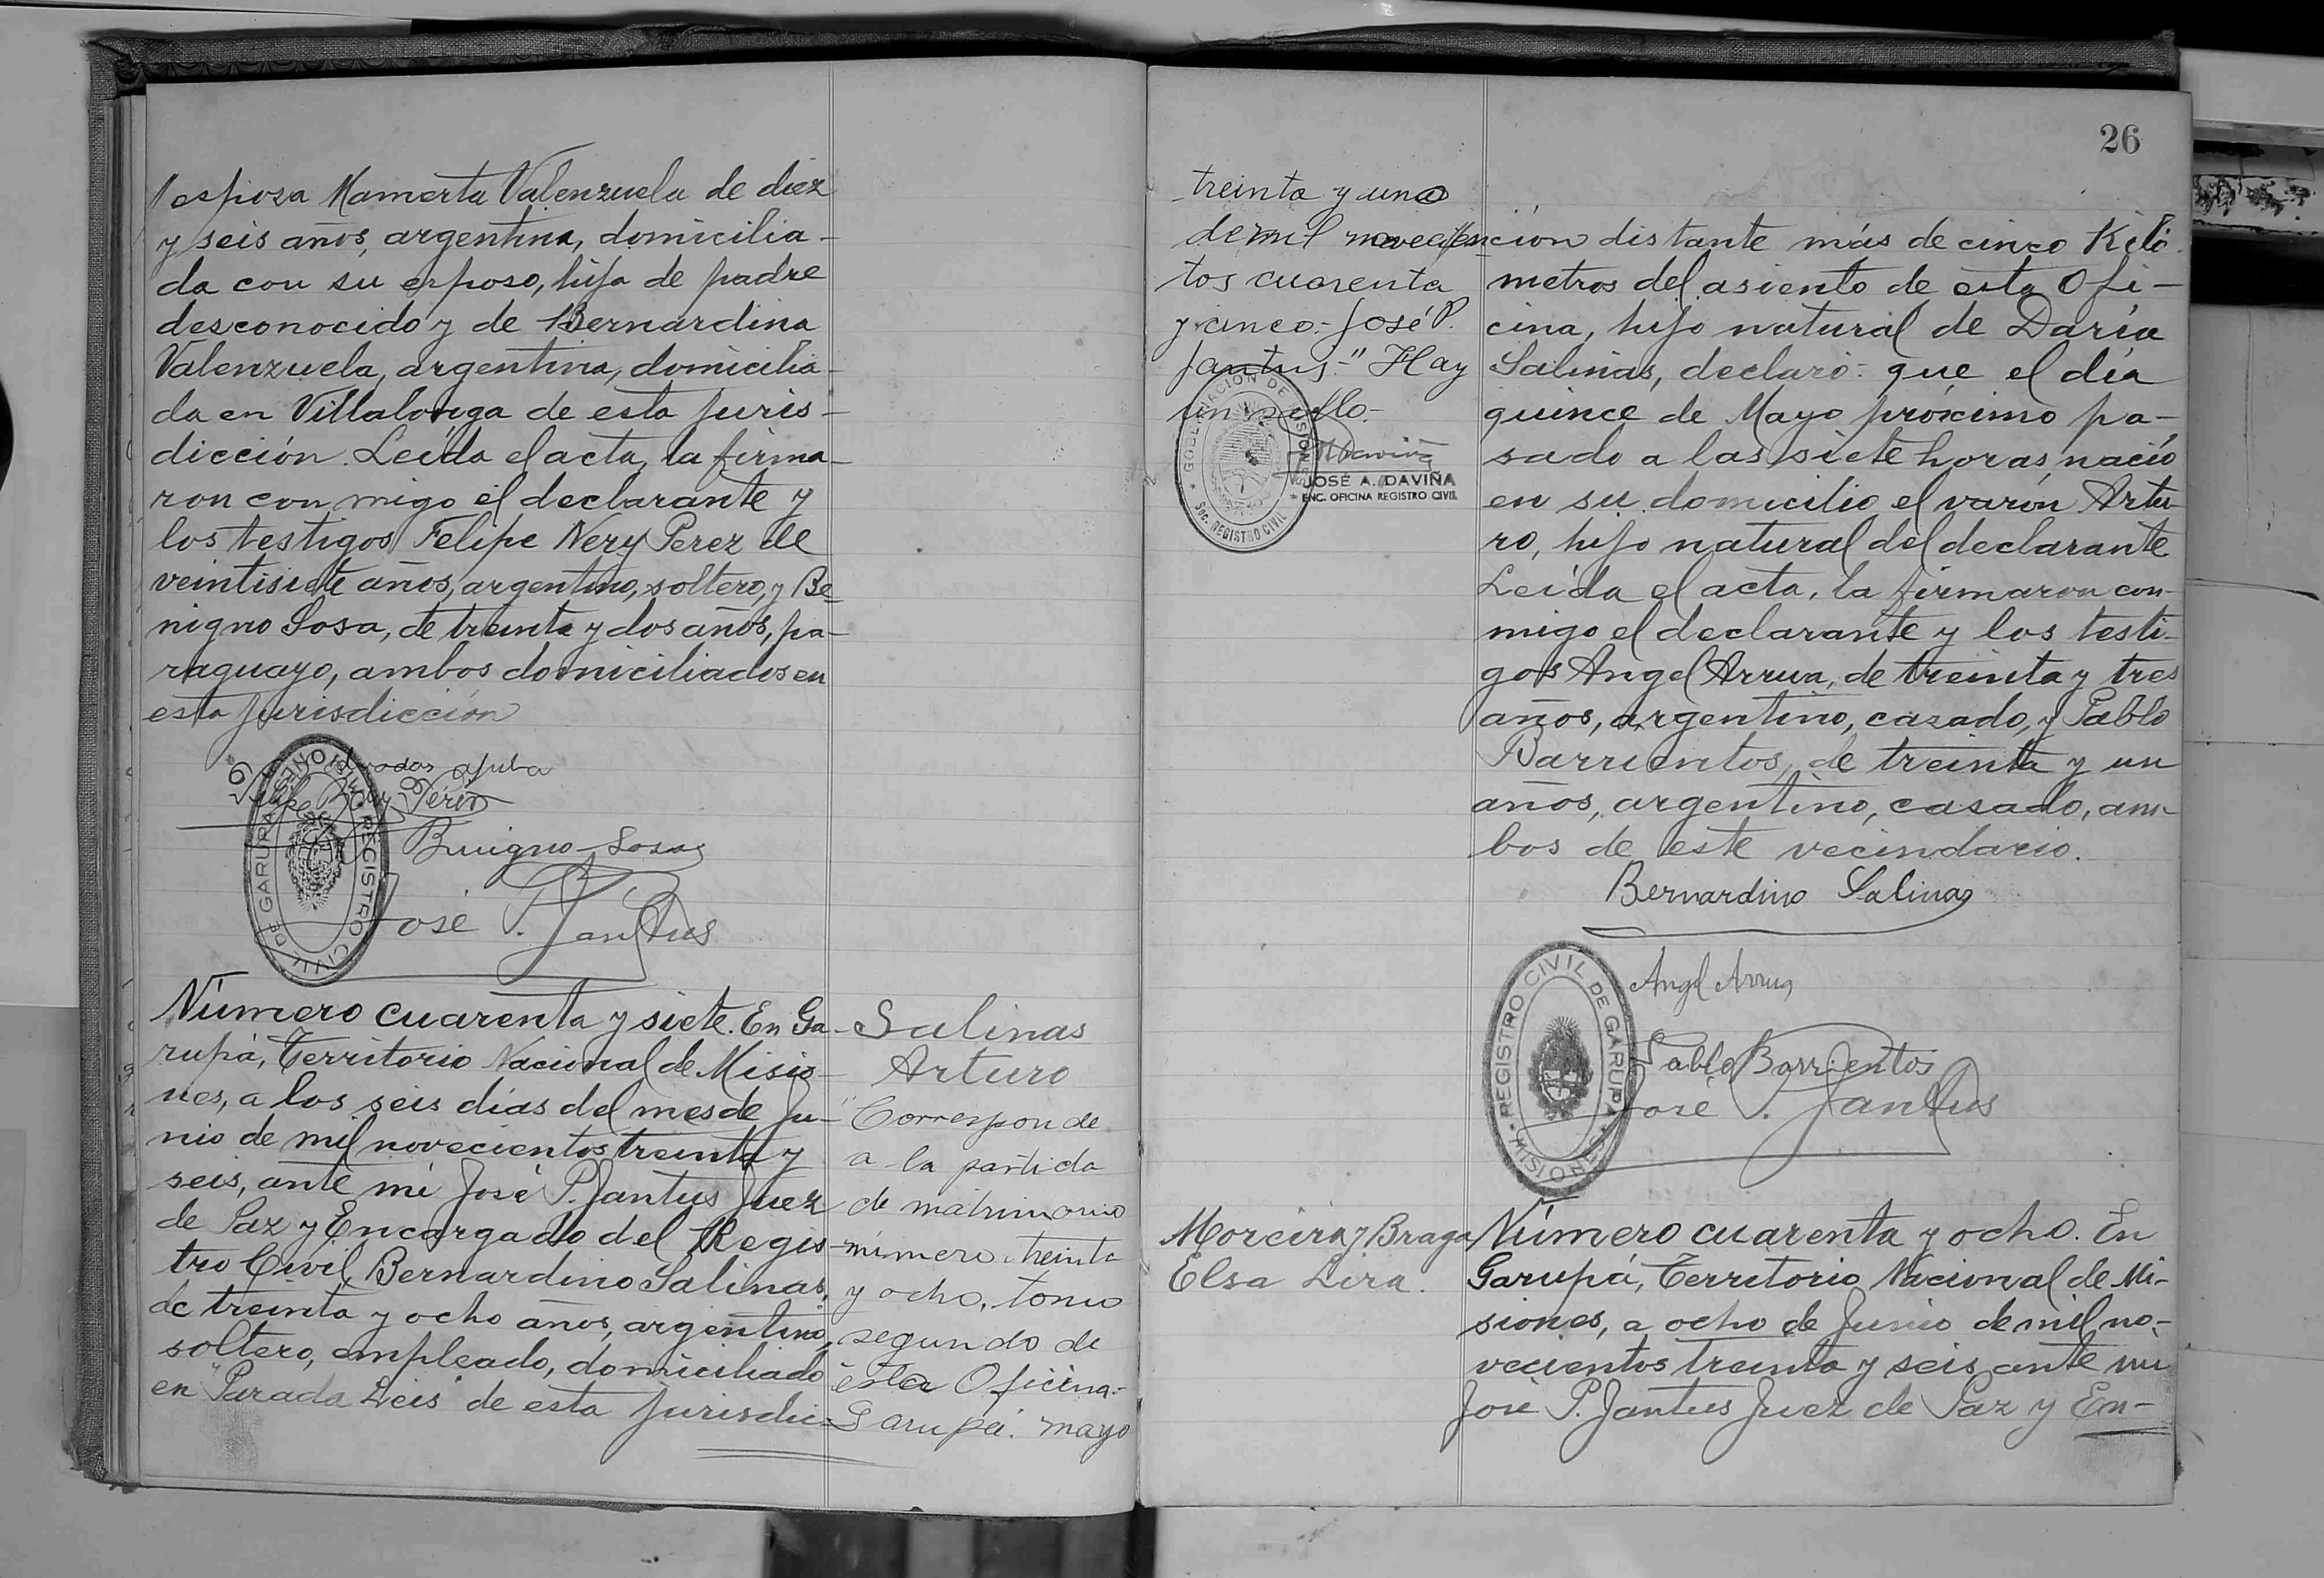 esposa Mamerta Valenzuela de diez
y seis años, argentina, domicilia-
da con su esposo, hija de padre
desconocido y de Bernardina
Valenzuela, argentina, domicilia-
da en Villalonga de esta juris-
dicción. Leída el acta, la firma-
ron con migo el declarante y
los testigos Felipe Nery Perez de
veintisiete años, argentino, soltero, y Be-
nigno Sosa, de treinta y dos años, pa-
raguayo, ambos domiciliados en
esta jurisdicción
Felipe Nery Perez
Benigno Sosa
José P. Jantus
REGISTRO CIVIL DE GARUPA MISIONES
Número cuarenta y siete. En Ga-
rupá, Territorio Nacional de Misio-
nes, a los seis días del mes de Ju-
nio de mil novecientos treinta y
seis, ante mí José P. Jantus Juez
de Paz y Encargado del Regis-
tro Civil, Bernardino Salinas,
de treinta y ocho años, argentino,
soltero, empleado, domiciliado
en "Parada Leis" de esta jurisdic-
Salinas
Arturo
"Corresponde
a la partida
de matrimonio
número treinta
y ocho, tomo
segundo de
ésta Oficina.-
Garupá: mayo
26
treinta y uno
de mil novecien-
tos cuarenta
y cinco.- José P.
Jantus." Hay
un sello.-
GOBERNACION DE MISIONES
Sec. REGISTRO CIVIL
JOSÉ A. DAVIÑA
ENC. OFICINA REGISTRO CIVIL
ción distante más de cinco Kiló-
metros del asiento de esta Ofi-
cina, hijo natural de Daría
Salinas, declaró: que el día
quince de Mayo próximo pa-
sado a las siete horas nació
en su domicilio el varón Artu-
ro, hijo natural del declarante
Leída el acta, la firmaron con-
migo el declarante y los testi-
gos Angel Arrua, de treinta y tres
años, argentino, cazado, y Pablo
Barrientos, de treinta y un
años, argentino, casado, am-
bos de este vecindario.
Bernardino Salinas
Angel Arrua
Pablo Barrientos
José P. Jantus
REGISTRO CIVIL DE GARUPA MISIONES
Moreira y Braga
Elsa Lira.
Número cuarenta y ocho. En
Garupá, Territorio Nacional de Mi-
siones, a ocho de Junio de mil no-
vecientos treinta y seis, ante mi
José P. Jantus Juez de Paz y En-